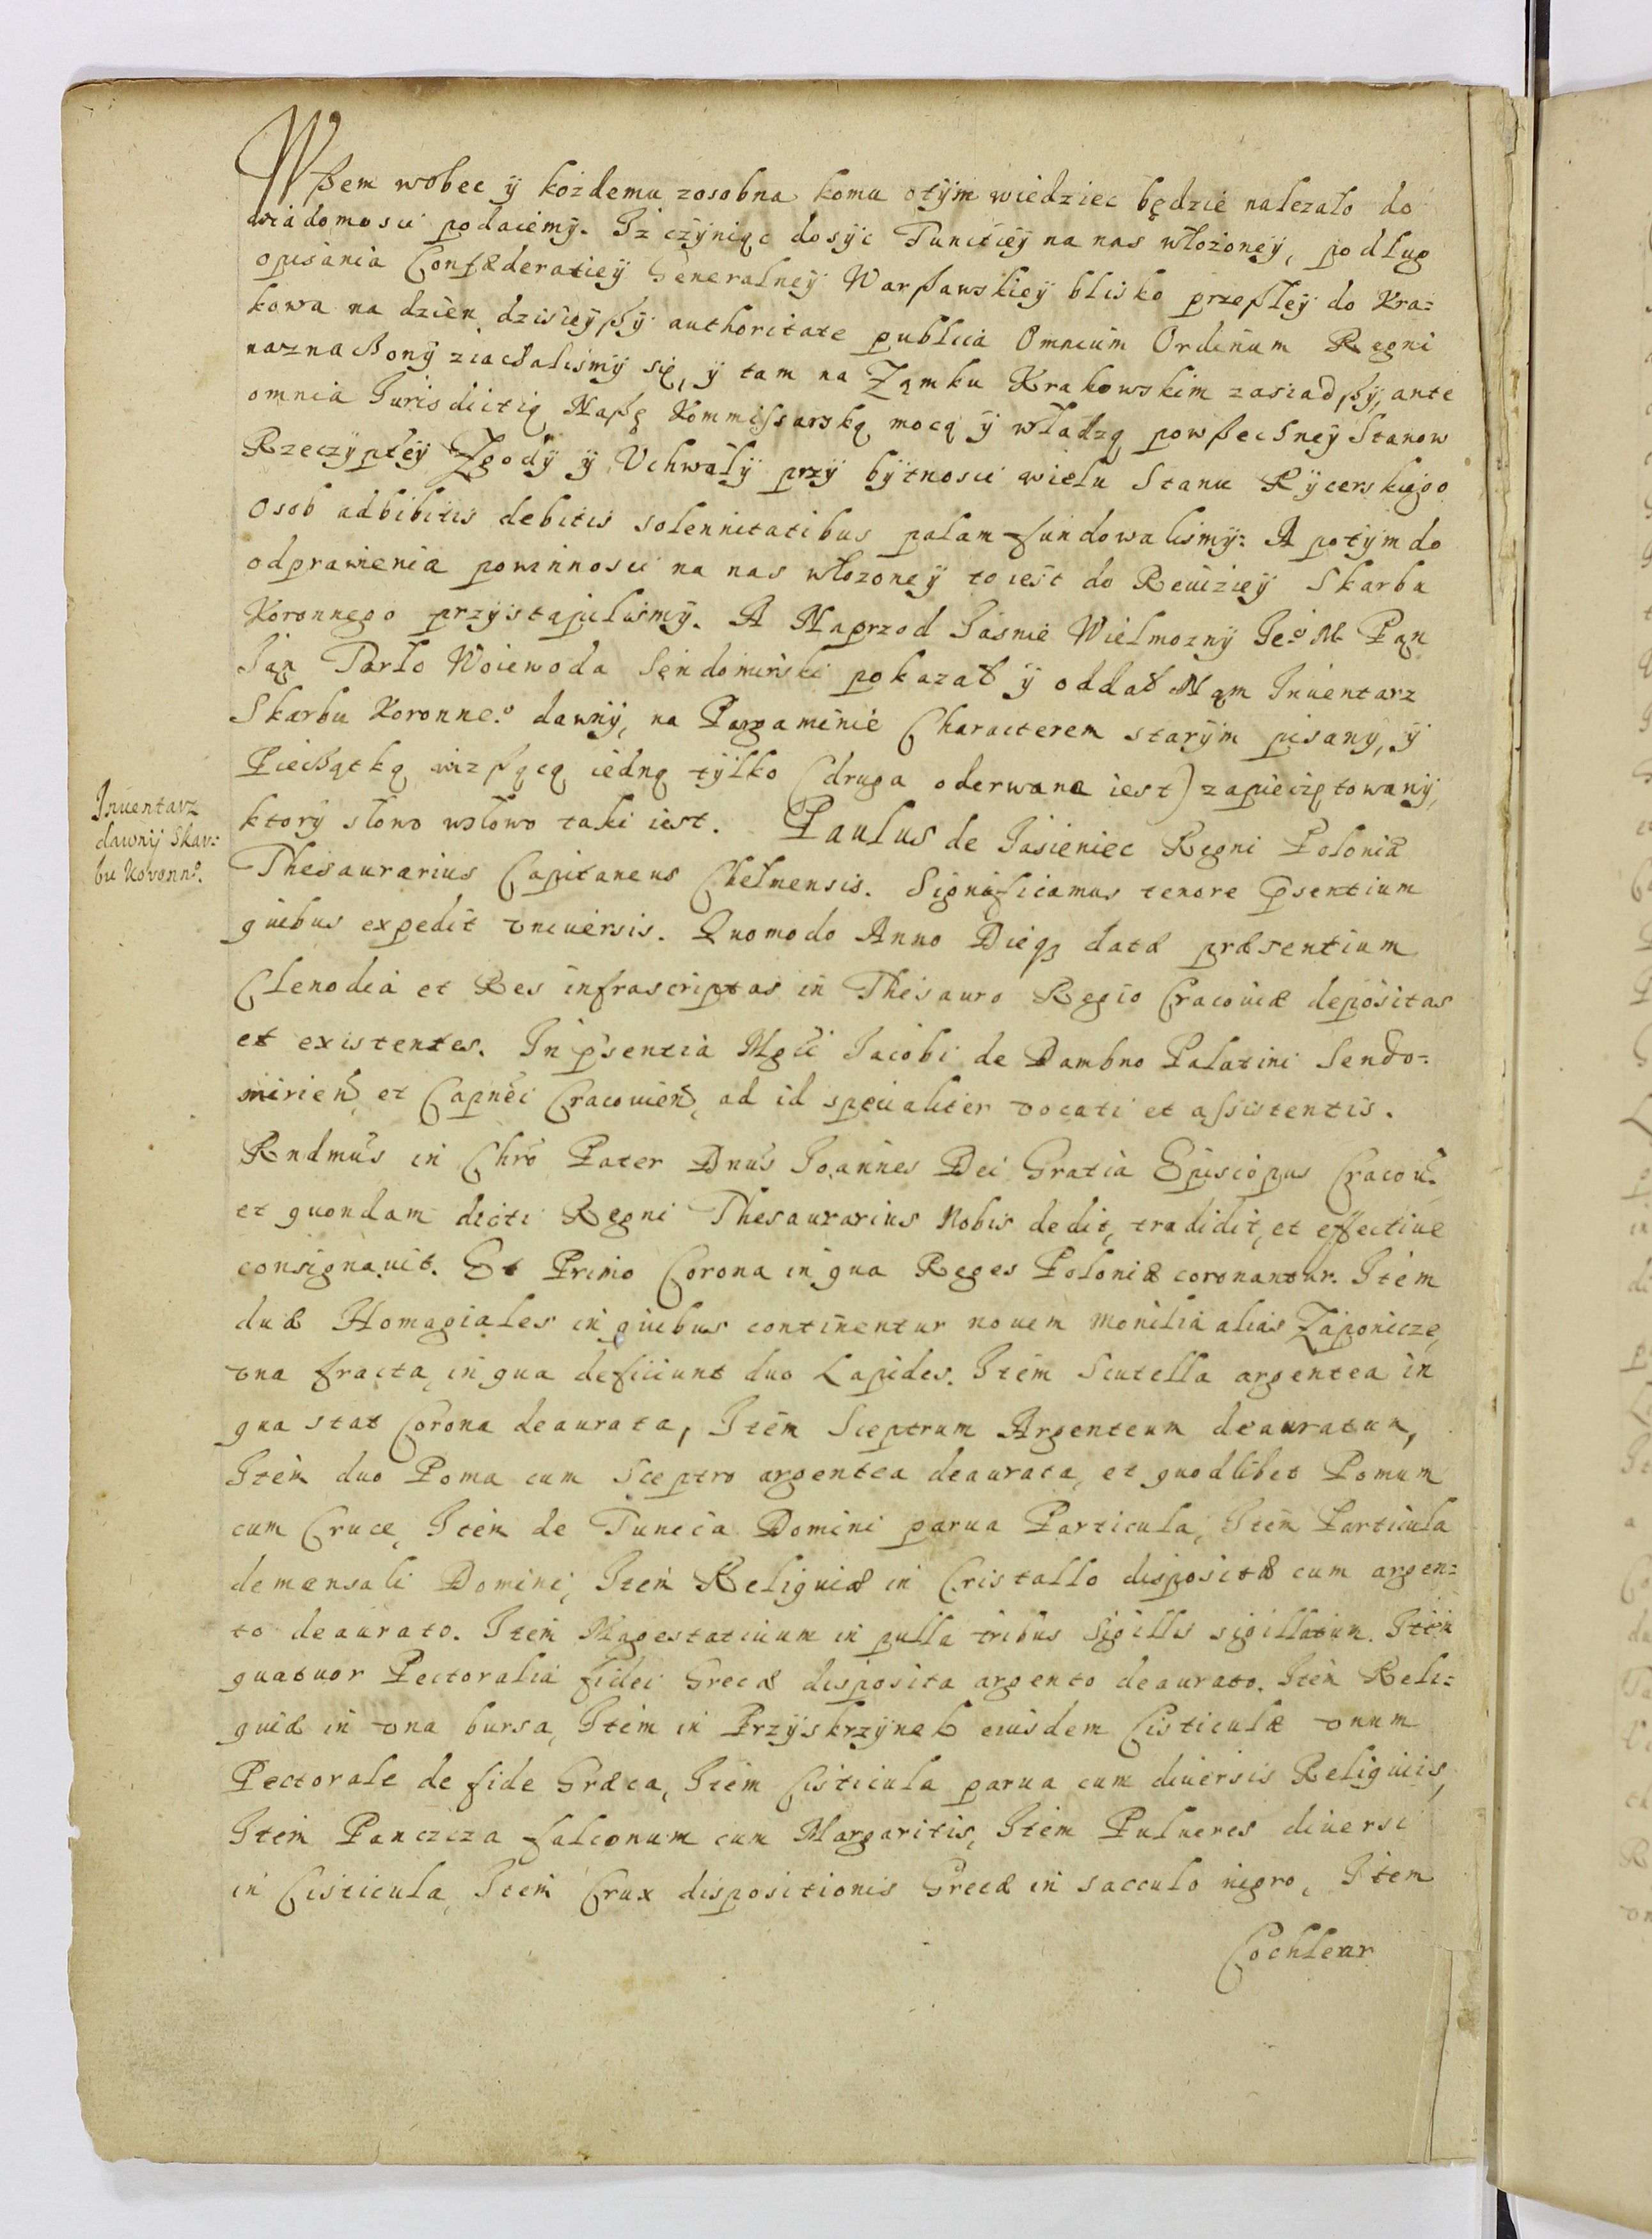 Wßem wobec ÿ kożdemu zosobna komu otÿm wiedziec będzie nalezało do
wiadomosci podaiemÿ. Iż czÿniąc dosÿc Funcÿeÿ na nas włożoneÿ, podług
opisania Confæderatieÿ Generalneÿ Warßawskieÿ blisko przeßłeÿ do Kra=
kowa na dzien dzisieÿßÿ authoritate publica Omnium Ordinum Regni
naznaczonÿ ziachalismÿ się, ÿ tam na Ząmku Krakowskim zasiadßÿ, ante
omnia Iurisdictią Naßę Kommissarską mocą ÿ władzą powßechneÿ Stanow
Rzeczÿpłeÿ Zgodÿ ÿ Uchwałÿ przÿ bÿtnosci wielu Stanu Rÿcerskiego
Osob adhibitis debitis solennitatibus palam fundowalismÿ: A potÿm do
odprawienia powinnosci na nas włozoneÿ to iest do Reuizieÿ Skarbu
Koronnego przÿstąpilismÿ. A Naprzod Iasnie Wielmoznÿ Ie.o M. Pąn
Ian Tarło Woiewoda Sęndomirski pokazał ÿ oddał Nąm Inuentarz
Skarbu Koronne.o dawnÿ, na Pargaminie Characterem starÿm pisanÿ, ÿ
Pieczątką wiszącą iedną tÿlko (druga oderwana iest) zapieczętowanÿ,
ktorÿ słowo wsłowo taki iest. Paulus de Iasieniec Regni Poloniæ
Inuentarz
dawnÿ Skar:
bu Koronn.o
Thesaurarius Capitaneus Chelmensis. Significamus tenore psentium
quibus expedit vniuersis. Quomodo Anno Dieq3 datæ præsentium
Clenodia et Res infrascriptas in Thesauro Regio Cracouiæ depositas
et existentes. In psentia Mgci Iacobi de Dambno Palatini Sendo=
mirien, et Capnei Cracouien, ad id specialiter vocati et assistentis.
Rndmus in Chro Pater Dnus Ioannes Dei Gratia Episcopus Cracou.
et quondam dicti Regni Thesaurarius Nobis dedit, tradidit, et effectiue
consignauit. Et Primo Corona in qua Reges Poloniæ coronantur. Item
duæ Homagiales in quibus continentur nouem Monilia alias Zaponicze,
vna fracta, in qua deficiunt duo Lapides. Item Scutella argentea in
qua stat Corona deaurata, Item Sceptrum Argenteum deauratum,
Item duo Poma cum Sceptro argentea deaurata, et quodlibet Pomum
cum Cruce, Item de Tunica Domini parua Particula, Item Particula
de mensali Domini, Item Reliquiæ in Cristallo dispositæ cum argen=
to deaurato. Item Magestaticum in pulla tribus Sigillis sigillatum. Item
quatuor Pectoralia fidei Grecæ disposita argento deaurato. Item Reli=
quiæ in vna bursa, Item in Przÿskrzÿnek eiusdem Cisticulæ vnum
Pectorale de fide Græca, Item Cisticula parua cum diuersis Reliquiis,
Item Panczcza falconum cum Margaritis, Item Pulueres diuersi
in Cisticula, Item Crux dispositionis Grecæ in sacculo nigro, Item
Cochlear